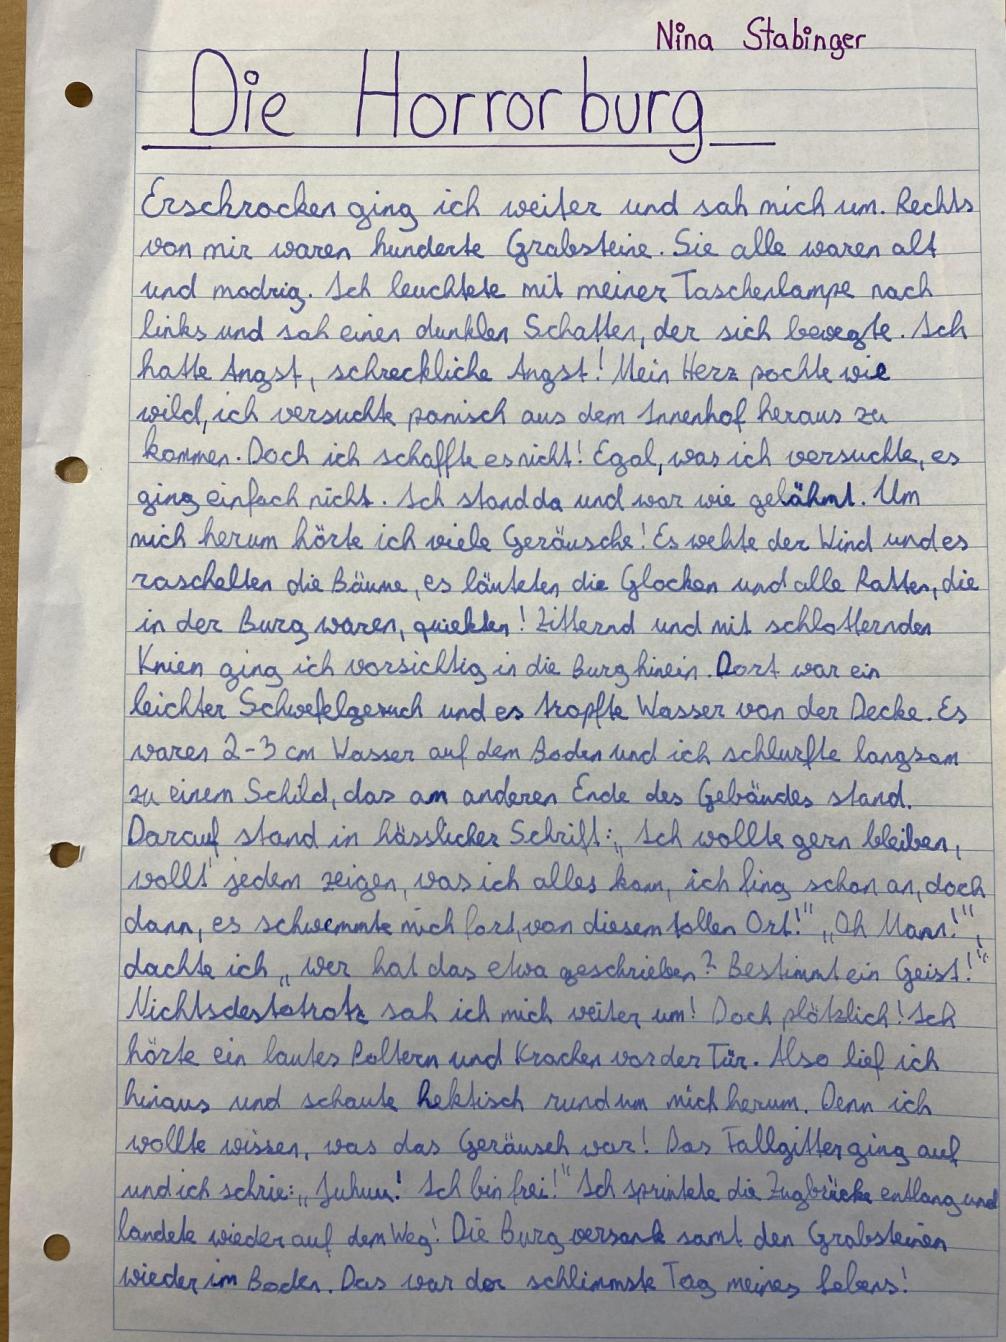 Nina Stabinger
Die Horrorburg
Erschrocken ging ich weiter und sah mich um. Rechts
von mir waren hunderte Grabsteine. Sie alle waren alt
und modrig. Ich leuchtete mit meiner Taschenlampe nach
links und sah einen dunklen Schatten, der sich bewegte. Ich
hatte Angst, schreckliche Angst! Mein Herz pochte wie
wild, ich versuchte panisch aus dem Innenhof heraus zu
kommen. Doch ich schaffte es nicht! Egal, was ich versuchte, es
ging einfach nicht. Ich stand da und war wie gelähmt. Um
mich herum hörte ich viele Geräusche! Es wehte der Wind und es
raschelten die Bäume, es läuteten die Glocken und alle Ratten, die
in der Burg waren, quiekten! Zitternd und mit schlotternden
Knien ging ich vorsichtig in die Burg hinein. Dort war ein
leichter Schwefelgeruch und es tropfte Wasser von der Decke. Es
waren 2-3 cm Wasser auf dem Boden und ich schlurfte langsam
zu einem Schild, das am anderen Ende des Gebäudes stand.
Darauf stand in hässlicher Schrift: „Ich wollte gern bleiben,
wollt' jedem zeigen, was ich alles kann, ich fing schon an, doch
dann, es schwemmte mich fort, von diesem tollen Ort!" „Oh Mann!",
dachte ich „wer hat das etwa geschrieben? Bestimmt ein Geist!"
Nichtsdestotrotz sah ich mich weiter um! Doch plötzlich! Ich
hörte ein lautes Poltern und Krachen vor der Tür. Also lief ich
hinaus und schaute hektisch rund um mich herum. Denn ich
wollte wissen, was das Geräusch war! Das Fallgitter ging auf
und ich schrie: „Juhuu! Ich bin frei!" Ich sprintete die Zugbrücke entlang und
landete wieder auf dem Weg! Die Burg versank samt den Grabsteinen
wieder im Boden. Das war der schlimmste Tag meines Lebens!